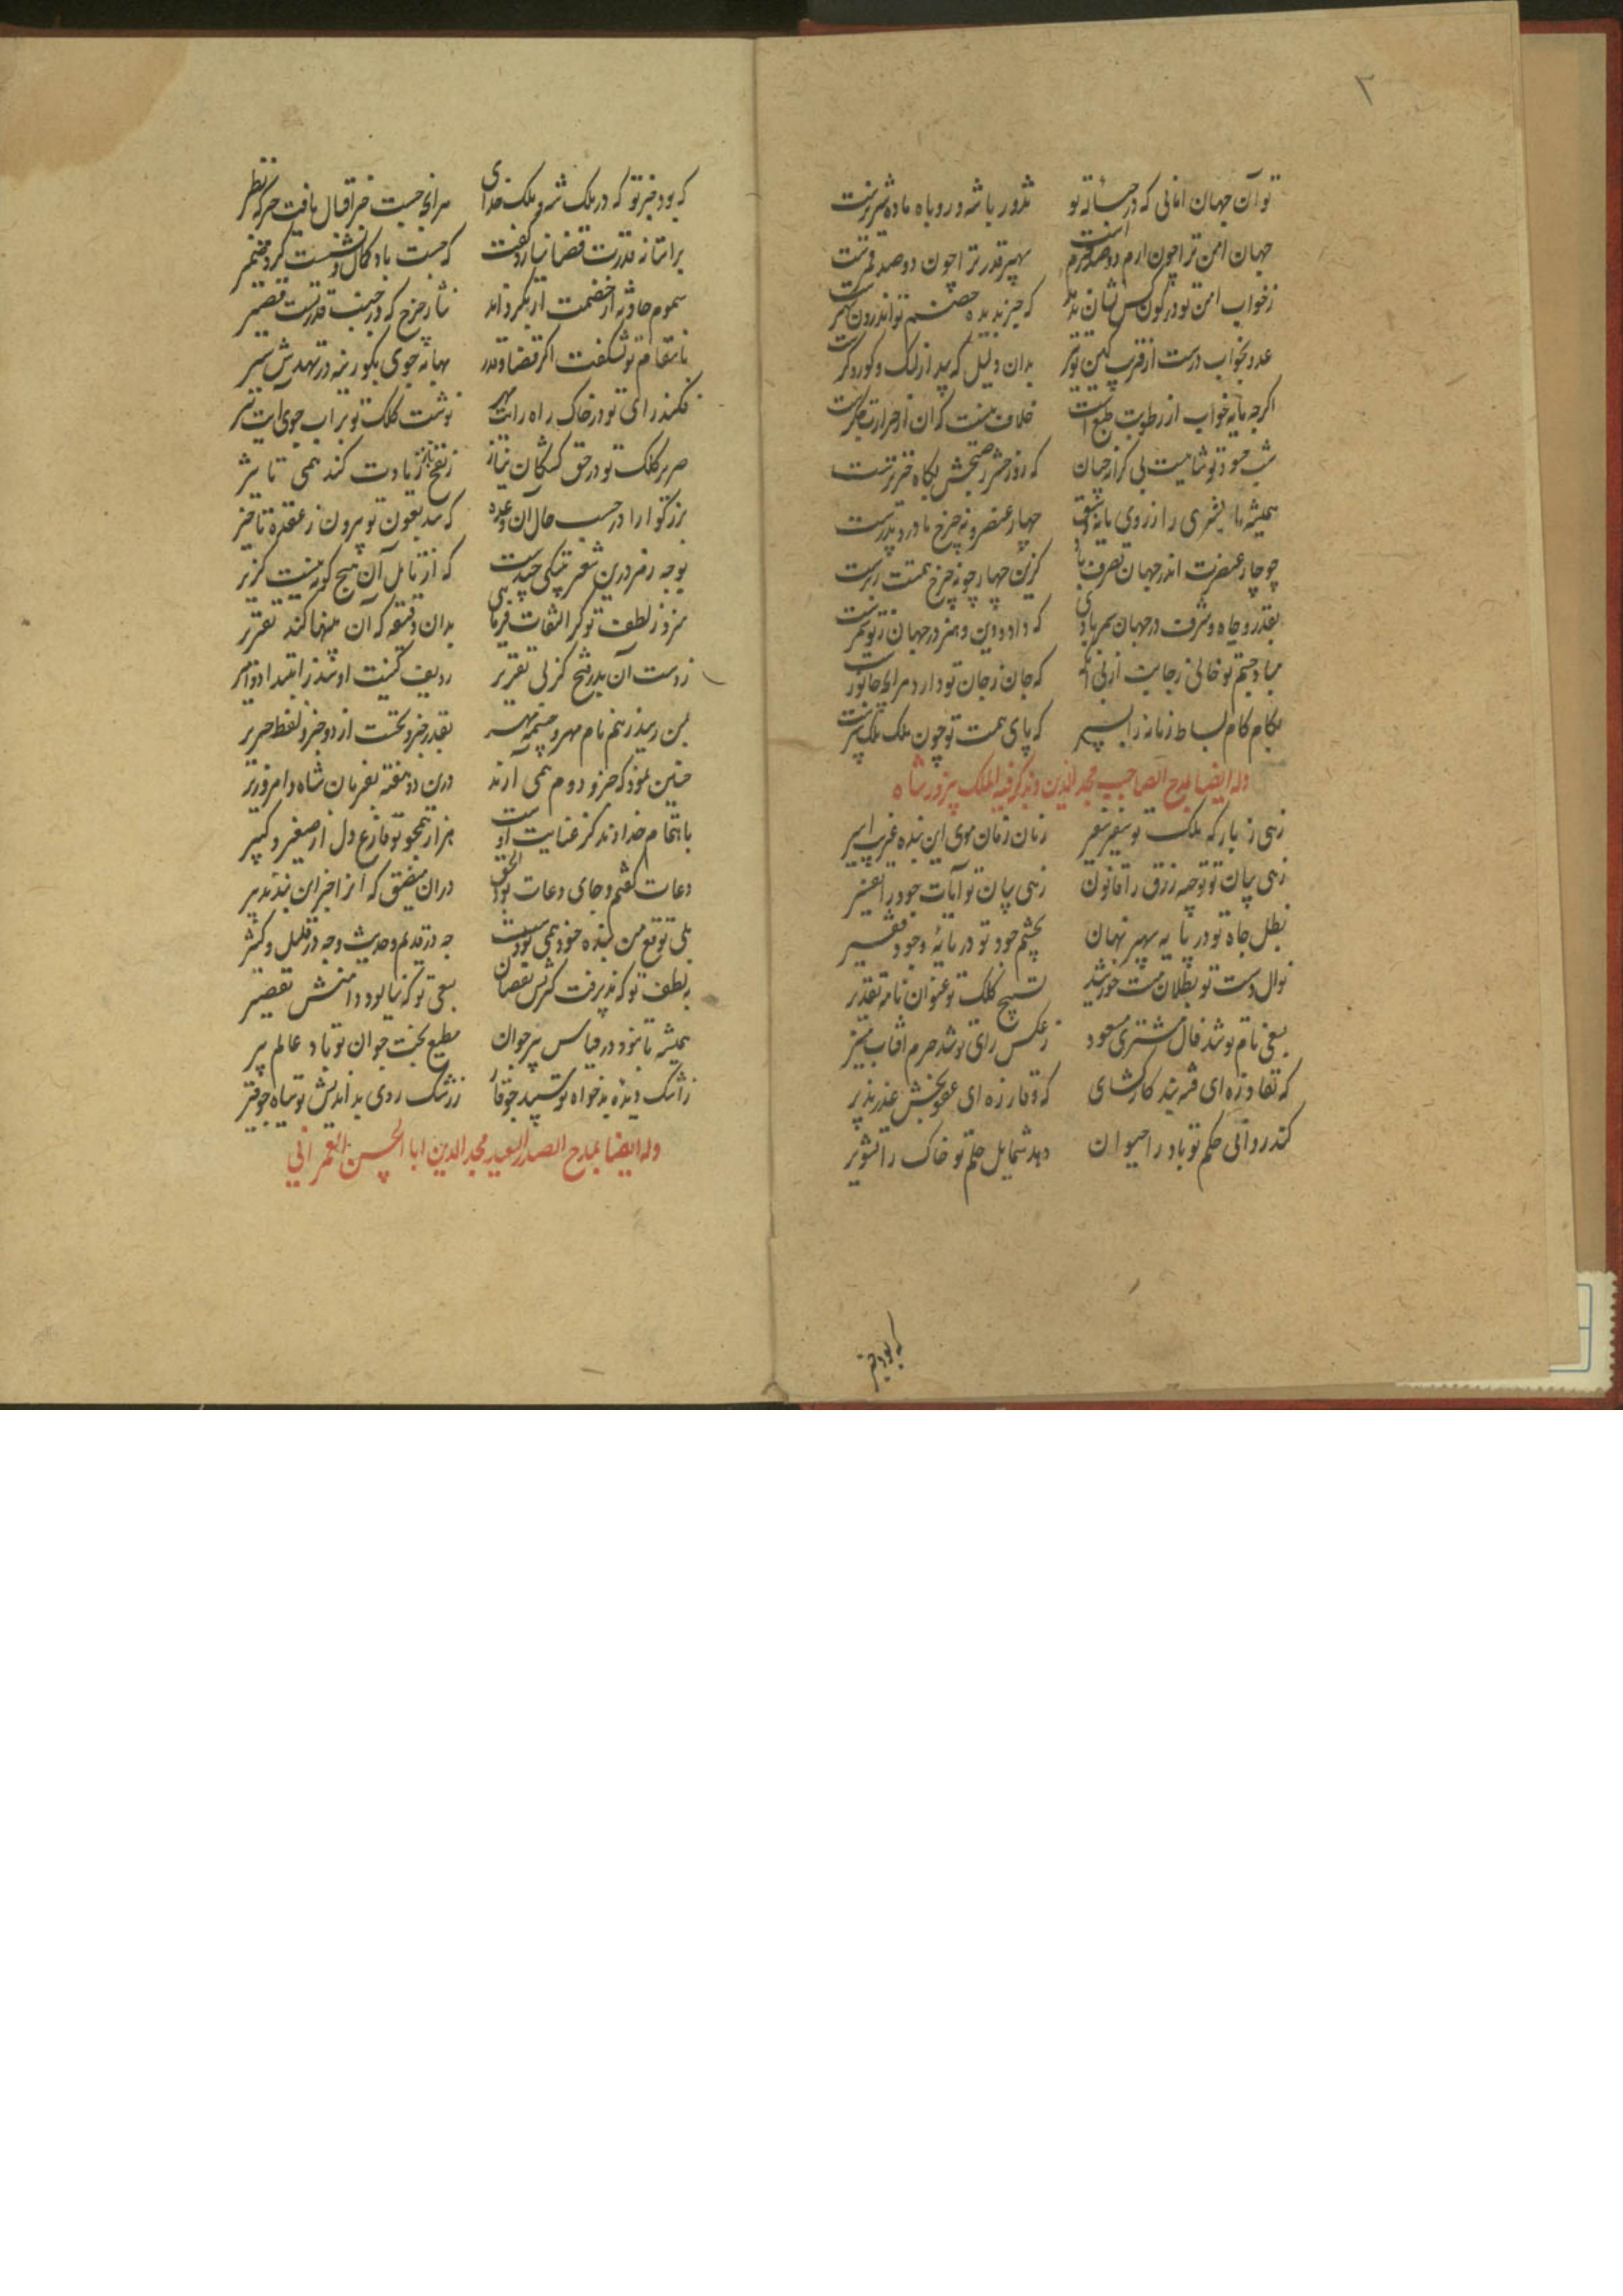 ۳
تو آن جهان امانی که در حمایت تو تذرو با شه و روباه ماده شیر نرست
جهان امن ترا چون ارم دو صد حرم است سپهر قدر ترا چون دو صد قمرست
ز خواب امن تو در کون کس نشان ندهد که جز بدیده تو اندرون سهرست
عدو بخواب درست از فریب کین تو بدان دلیل که کور و کرست
اگرچه مایه خواب از رطوبت طبع است خلاف نیست که آن از حرارت جگرست
شب حسود تو شامیست بی کرانه چنان که روز حشر ز صبحش پگاه خیزترست
همیشه تا بشری را ز روی مایه و چهار عنصر و نه چرخ مادر و پدرست
چو چار عنصرت اندر جهان تصرف باد کزین چهار چو نه چرخ همتت زبرست
بقدر و جاه و شرف در جهان سمر بادی که داد و دین و هنر در جهان ز تو سمرست
مباد چشم تو خالی ز جانت که جان ز جان تو دارد هر آنچه جانورست
بکام کام بساط زمانه را بسپر که پای همت تو چون ملک فلک سپرست
وله ایضا بمدح الصاحب مجد الدین ویذکر فیه الملک پیروزشاه
زهی ز بارگه ملک تو سفیر سفیر زمان زمان سوی این بنده غریب اسیر
زهی بیان تو توجیه رزق را قانون زهی بنان تو آیات جود را تفسیر
بظل جاه تو در پایه سپهر نهان بچشم جود تو در مایهٔ وجود فقیر
نوال دست تو بطلان منت خورشید نسیج کلک تو عنوان نامه تقدیر
بسعی نام تو شد فال مشتری مسعود ز عکس رای تو شد جرم آفتاب منیر
که نفاذ زه ای قدربند کارگشای که وقار زه ای عفوبخش عذرپذیر
کند روانی حکم تو باد را حیران دهد شمایل حلم تو خاک را تشویر
که بود جز تو
که بود جز تو که در ملک شه و ملک خدای هر آنچه جست ز اقبال یافت جز که نظیر
بر آستانه قدرت قضا نیارد گفت که جست باد کمال و نشست گرد
سموم حادثه از خصمت ار بگرداند نثار چرخ که در جنب قدرتست قصیر
بانتقام تو نشگفت اگر قضا و قدر بهانه جوی بگور نه در تهدیدش سیر
فکند رای تو در خاک راه رایت مهر نوشت کلک تو بر آب جوی آیت تیر
صریر کلک تو در حق کشتگان نیاز ز نفخ صور زیادت کند همی تاثیر
بزرگوارا در حسب حال آن وعده که شد بعون تو بیرون ز عقده تاخیر
بوجه رمز درین شعر بیتکی چندست که از تامل آن هیچ گونه نیست گزیر
هم از ز لطف تو گر التفات فرمایی بدان دقیقه که آن بیتها کند تقریر
ز دست آن پدر فتح کز لبی تقریر ردیف کنیت او شد ز ابتدا
بمن رسید ز هم نام مهر و چشمه مهر بقدر جزو نخست از دو جزو لفظ حریر
چنین نمود که جزو دوم همی آرند درین دو هفته بفرمان شاه و امر وزیر
باهتمام خداوند کز عنایت اوست هزار همچو تو فارغ دل از صغیر و کبیر
دعات گفتم و جای دعات بود الحق در آن مضیق که آنرا جز این نبد تدبیر
بلی توقع من بنده خود همی بودست چه در قدیم و حدیث و چه در قلیل و کثیر
بلطف تو که نپذیرفت کثرتش نقصان بسعی تو که نیالود دامنش تقصیر
همیشه تا نبود در قیاس پیر جوان مطیع بخت جوان تو باد عالم پیر
ز اشک دیده بدخواه تو سپید چو قار ز رشک روی بد اندیش تو سیاه چو قیر
وله ایضا بمدح الصدر السعید مجد الدین ابا الحسن العمرانی